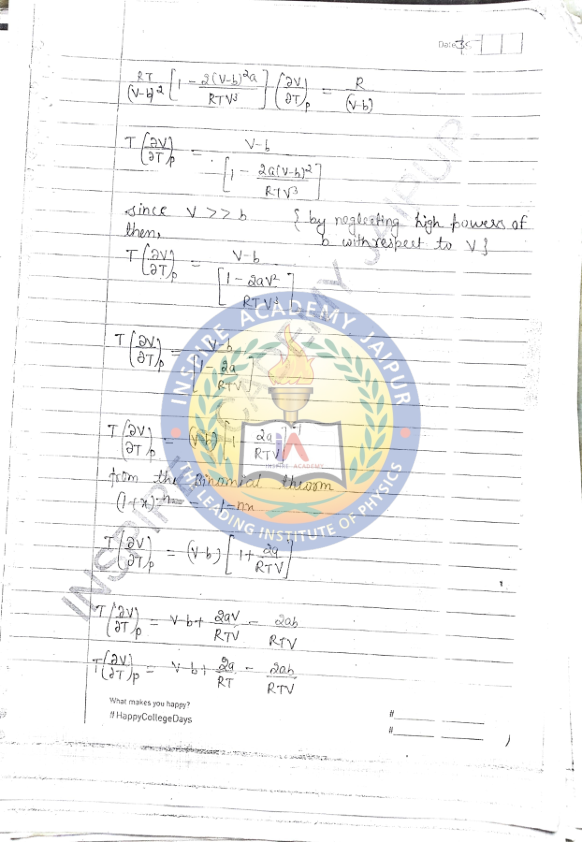 Date
RT/(V-b)² [1 - 2(V-b)²a/RTV³] (∂V/∂T)p = R/(V-b)
T(∂V/∂T)p = V-b/[1 - 2a(V-b)²/RTV³]
since V >> b { by neglecting high powers of
then, b with respect to V }
T(∂V/∂T)p = V-b/[1 - 2aV²/RTV³]
T(∂V/∂T)p = V-b/[1 - 2a/RTV]
T(∂V/∂T)p = (V-b) [1 - 2a/RTV]⁻¹
from the Binomial theorm
(1+x)⁻ⁿ = 1-nx
T(∂V/∂T)p = (V-b) [1 + 2a/RTV]
T(∂V/∂T)p = V-b + 2aV/RTV - 2ab/RTV
T(∂V/∂T)p = V-b + 2a/RT - 2ab/RTV
What makes you happy?
#HappyCollegeDays
#
#
INSPIRE ACADEMY JAIPUR
INSPIRE ACADEMY JAIPUR
iA
INSPIRE ACADEMY
THE LEADING INSTITUTE OF PHYSICS